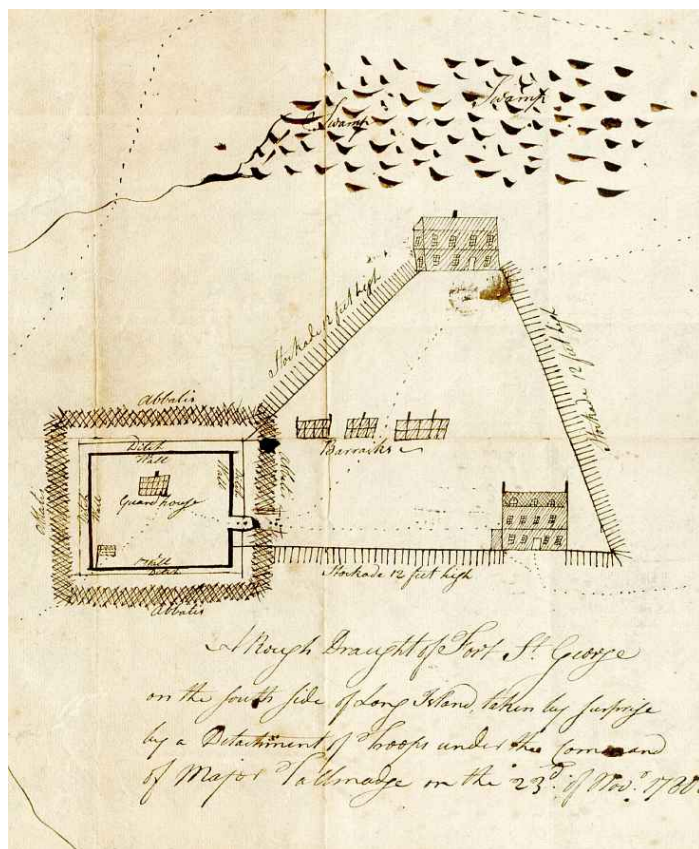 Swamp
Swamp
Stockade 12 feet high
Stockade 12 feet high
Abbatis
Ditch
Wall
Abbatis
Ditch
Wall
Wall
Ditch
Abbatis
Guard house
Barracks
Wall
Ditch
Stockade 12 feet high
Abbatis
A Rough Draught of Fort St. George
on the south side of Long Island, taken by surprise
by a Detachment of Troops under the Command
of Major Tallmadge on the 23d. of Novr. 1780.